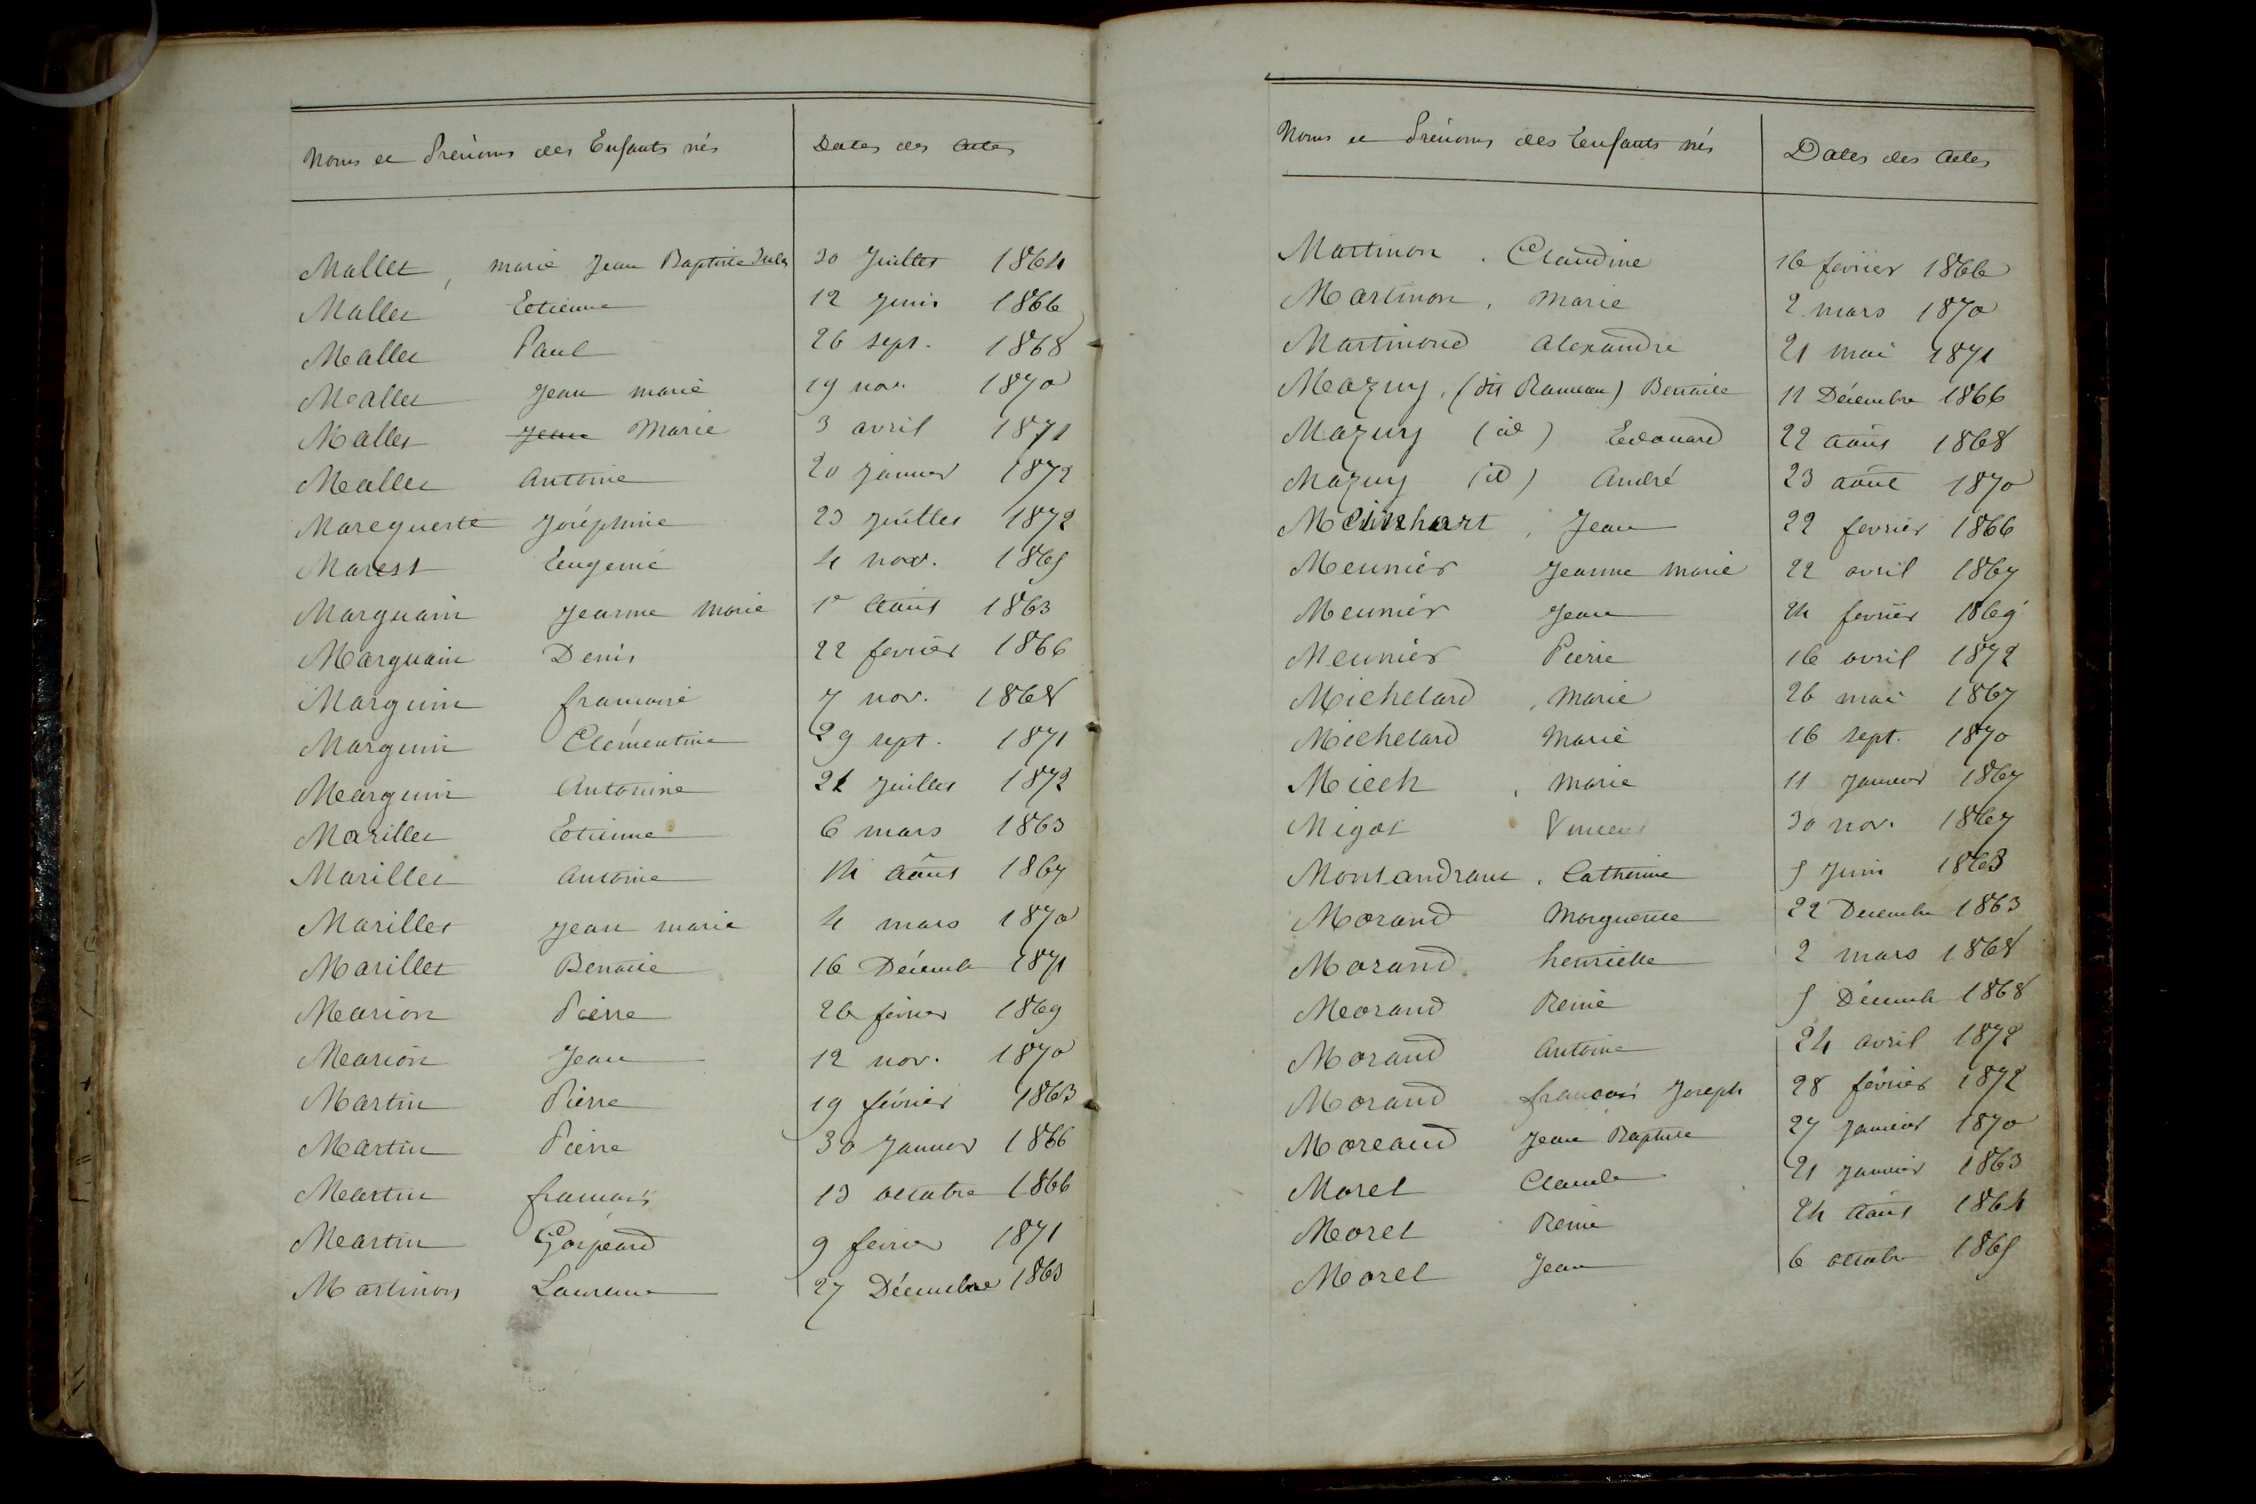 Noms et Prénoms des Enfants nés Dates des Actes
Mallet, marie Jean Baptiste Jules 30 Juillet 1864
Mallet Etienne 12 Juin 1866
Mallet Paul 26 sept. 1868
Mallet Jean marie 19 nov. 1870
Mallet Jean Marie 3 avril 1871
Mallet Antoine 20 Janvier 1872
Mareguerte Joséphine 23 Juillet 1872
Marest Eugenie 4 nov. 1865
Marguain Jeanne Marie 1er Août 1863
Marguain Denis 22 fevrier 1866
Marguin francoise 7 nov. 1868
Marguin Clémentine 29 sept. 1871
Marguin Antonine 21 Juillet 1872
Marillet Etienne 6 mars 1863
Marillet Antoine 14 Août 1867
Marillet Jean marie 4 mars 1870
Marillet Benoite 16 Décemb 1871
Marion Pierre 26 fevrier 1869
Marion Jean 12 nov. 1870
Martin Pierre 19 février 1863
Martin Pierre 30 Janvier 1866
Martin francois 13 octobre 1866
Martin Gaspard 9 fevrier 1871
Martinon Laurence 27 Décembre 1863
Noms et Prénoms des Enfants nés Dates des Actes
Martinon. Claudine 16 fevrier 1866
Martinon, Marie 2 mars 1870
Martinond Alexandre 21 mai 1871
Mazuy, (dit Rameau) Benoite 11 Décembre 1866
Mazuy (id) Edouard 22 Août 1868
Mazuy (id) André 23 août 1870
Meinhart, Jean 22 fevrier 1866
Meunier Jeanne marie 22 avril 1867
Meunier Jean 24 fevrier 1869
Meunier Pierre 16 avril 1872
Michelard, Marie 26 mai 1867
Michelard Marie 16 sept. 1870
Miech, Marie 11 Janvier 1867
Migot Vincent 30 nov. 1867
Montandraut, Catherine 5 Juin 1863
Morand Marguerite 22 Decembre 1863
Morand henriette 2 mars 1868
Morand Reine 5 Décemb 1868
Morand Antoine 24 avril 1872
Morand francois Joseph 28 février 1872
Moreaud Jean Baptiste 27 Janvier 1870
Morel Claude 21 Janvier 1863
Morel Reine 24 Août 1864
Morel Jean 6 octobre 1865